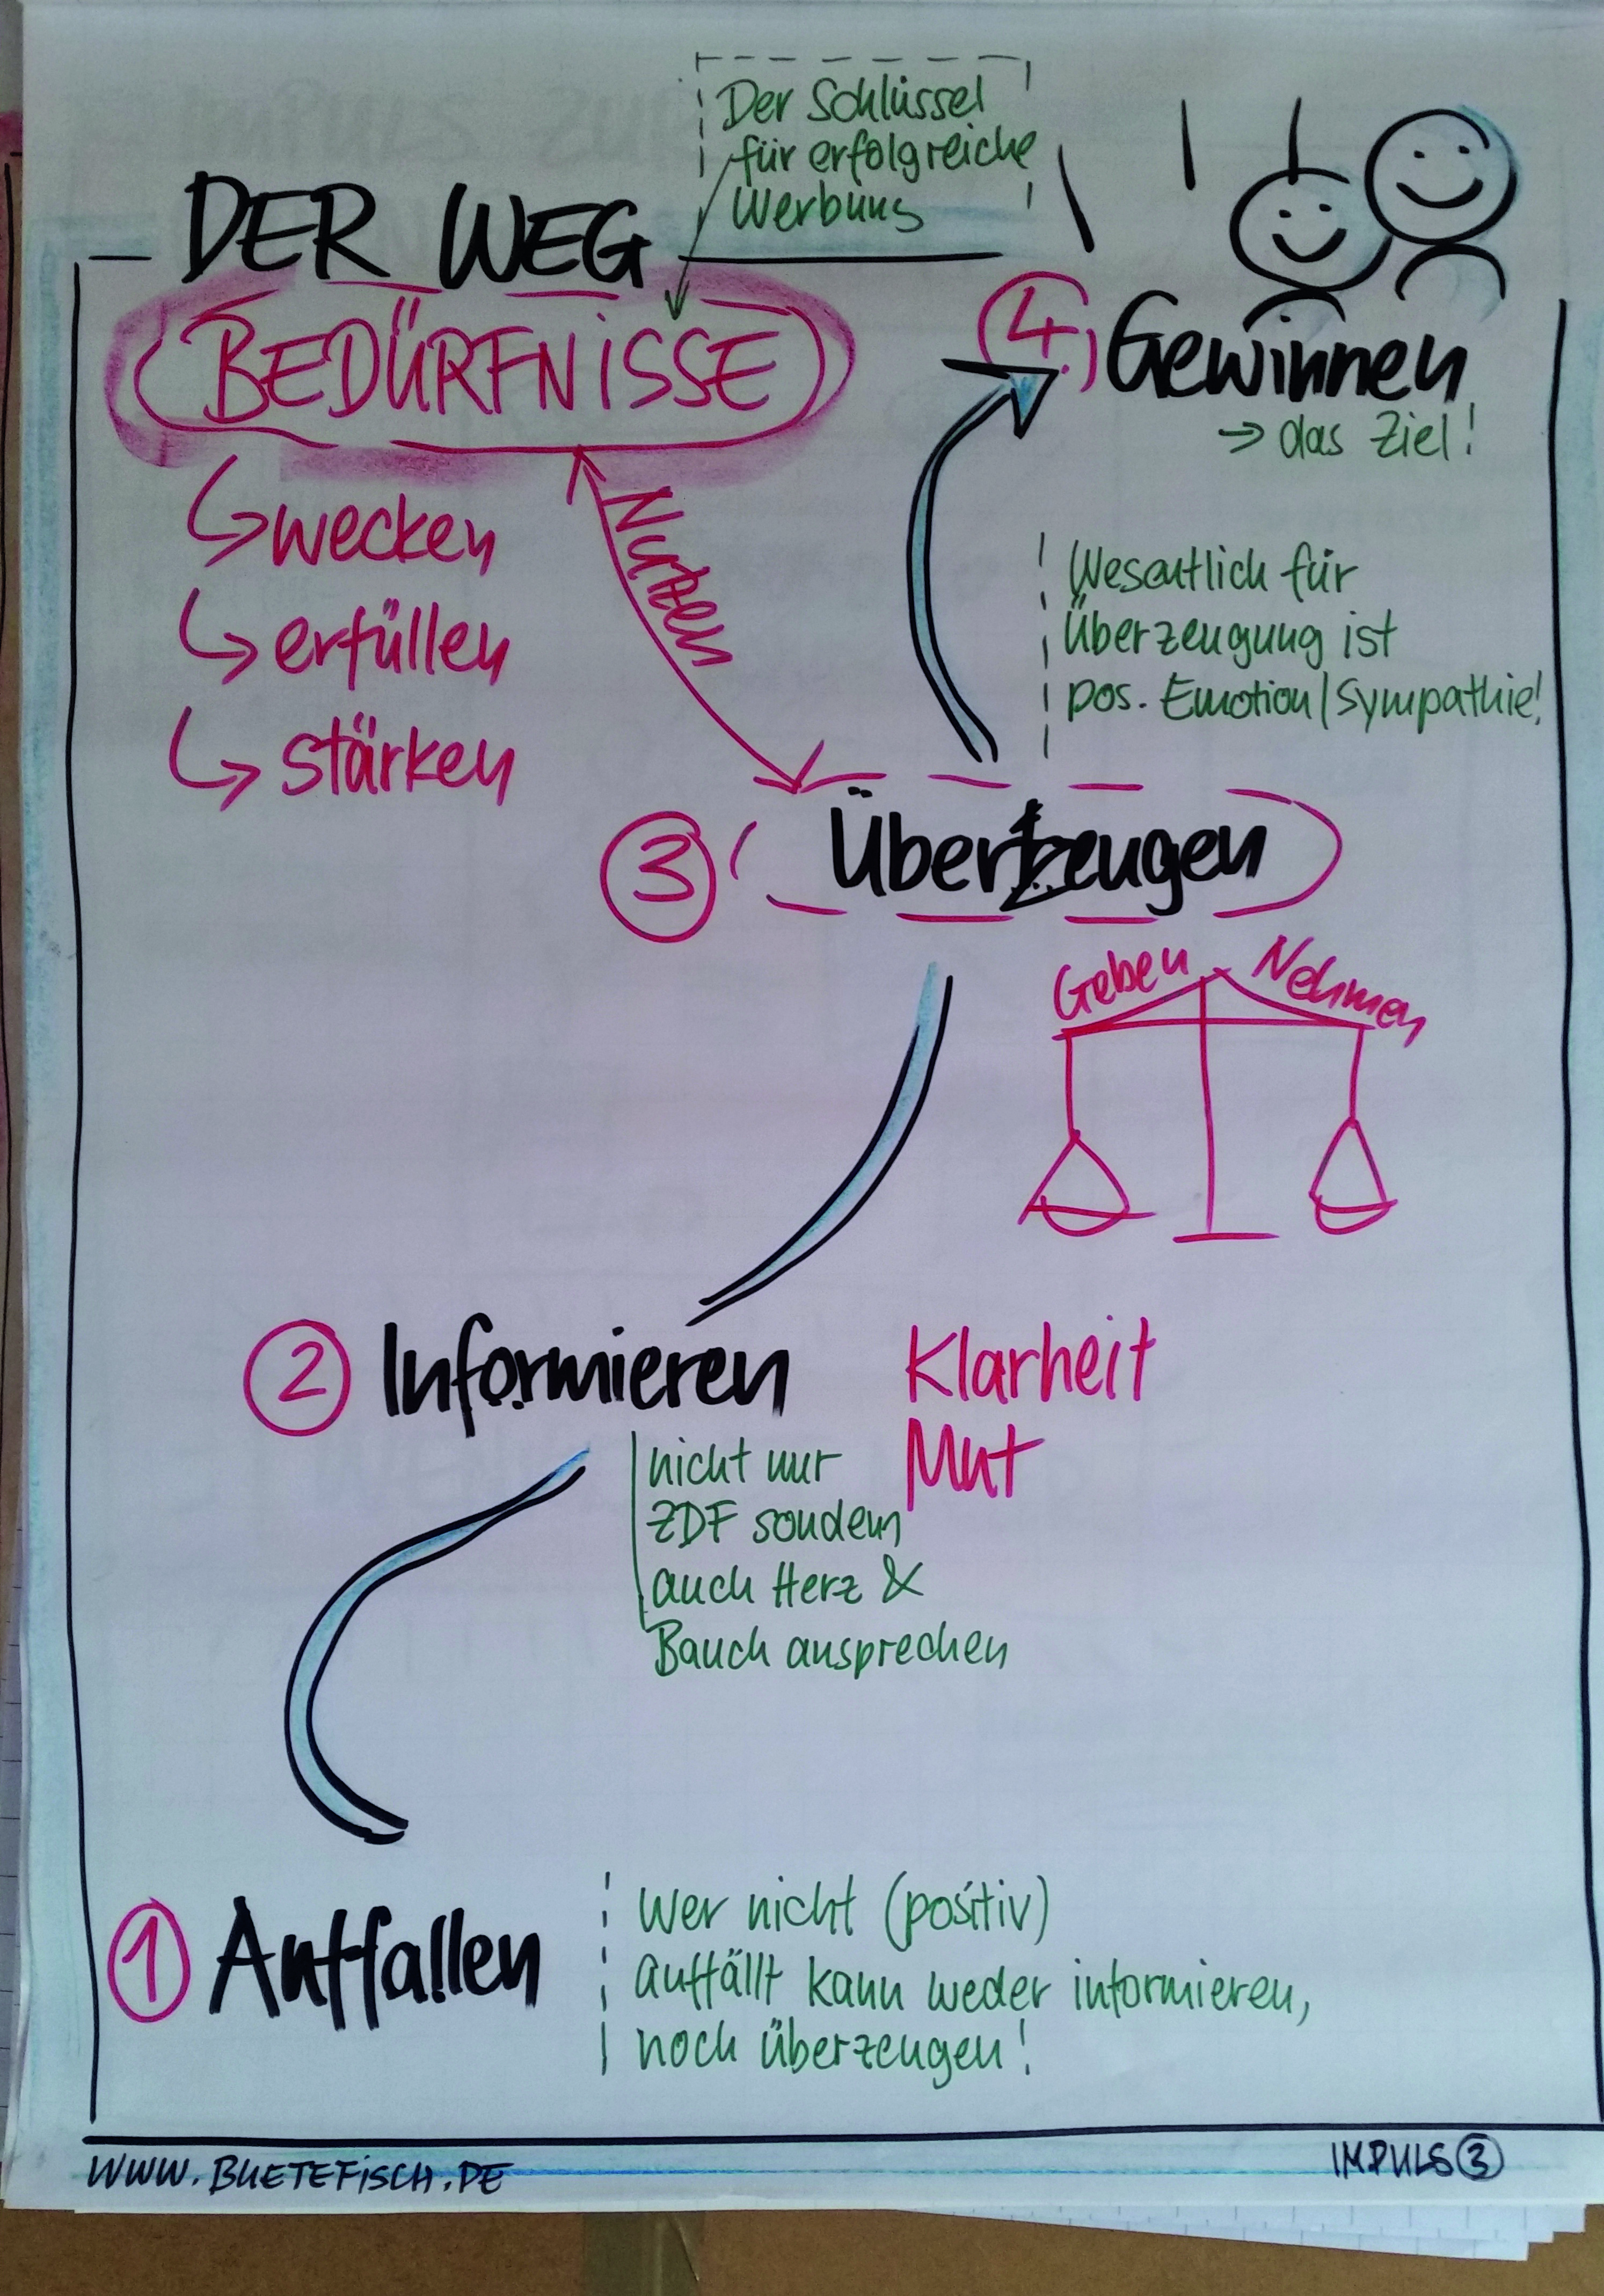 Der Schlüssel
für erfolgreiche
Werbung
DER WEG
BEDÜRFNISSE
wecken
erfüllen
stärken
Nutzen
4.
Gewinnen
→ das Ziel!
Wesentlich für
Überzeugung ist
pos. Emotion/Sympathie!
3
Überzeugen
Geben
Nehmen
2
Informieren
Klarheit
Mut
nicht nur
ZDF sondern
auch Herz &
Bauch ansprechen
1
Auffallen
Wer nicht (positiv)
auffällt kann weder informieren,
noch überzeugen!
WWW.BUETEFISCH.DE
IMPULS 3